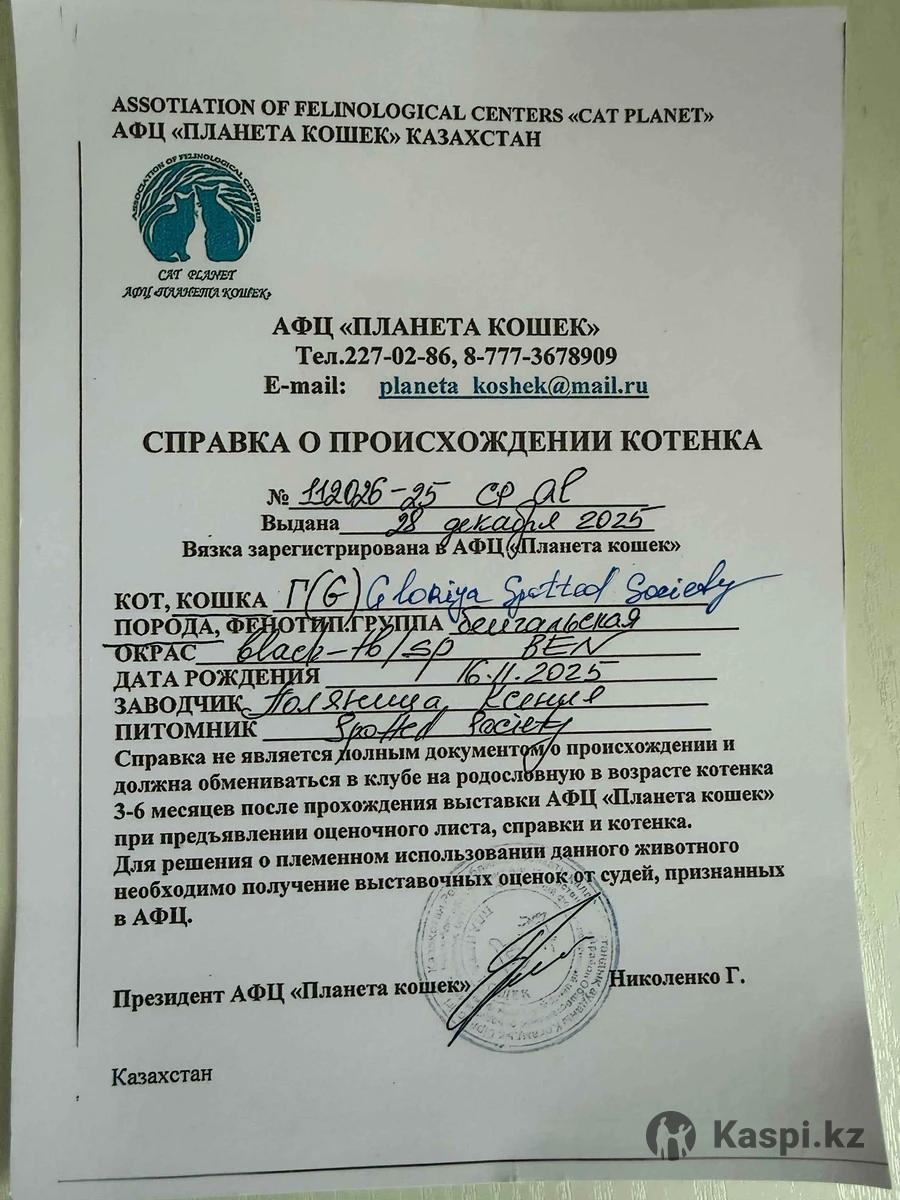 ASSOTIATION OF FELINOLOGICAL CENTERS «CAT PLANET»
АФЦ «ПЛАНЕТА КОШЕК» КАЗАХСТАН
ASSOCIATION OF FELINOLOGICAL CENTERS
CAT PLANET
АФЦ «ПЛАНЕТА КОШЕК»
АФЦ «ПЛАНЕТА КОШЕК»
Тел.227-02-86, 8-777-3678909
E-mail: planeta_koshek@mail.ru
СПРАВКА О ПРОИСХОЖДЕНИИ КОТЕНКА
№ 112026-25 CP al
Выдана 28 декабря 2025
Вязка зарегистрирована в АФЦ «Планета кошек»
КОТ, КОШКА Г(G) Gloriya Spotted Society
ПОРОДА, ФЕНОТИП.ГРУППА бенгальская
ОКРАС black-tb/sp BEN
ДАТА РОЖДЕНИЯ 16.11.2025
ЗАВОДЧИК Поляница Ксения
ПИТОМНИК Spotted Society
Справка не является полным документом о происхождении и
должна обмениваться в клубе на родословную в возрасте котенка
3-6 месяцев после прохождения выставки АФЦ «Планета кошек»
при предъявлении оценочного листа, справки и котенка.
Для решения о племенном использовании данного животного
необходимо получение выставочных оценок от судей, признанных
в АФЦ.
Президент АФЦ «Планета кошек» Николенко Г.
Казахстан
Kaspi.kz